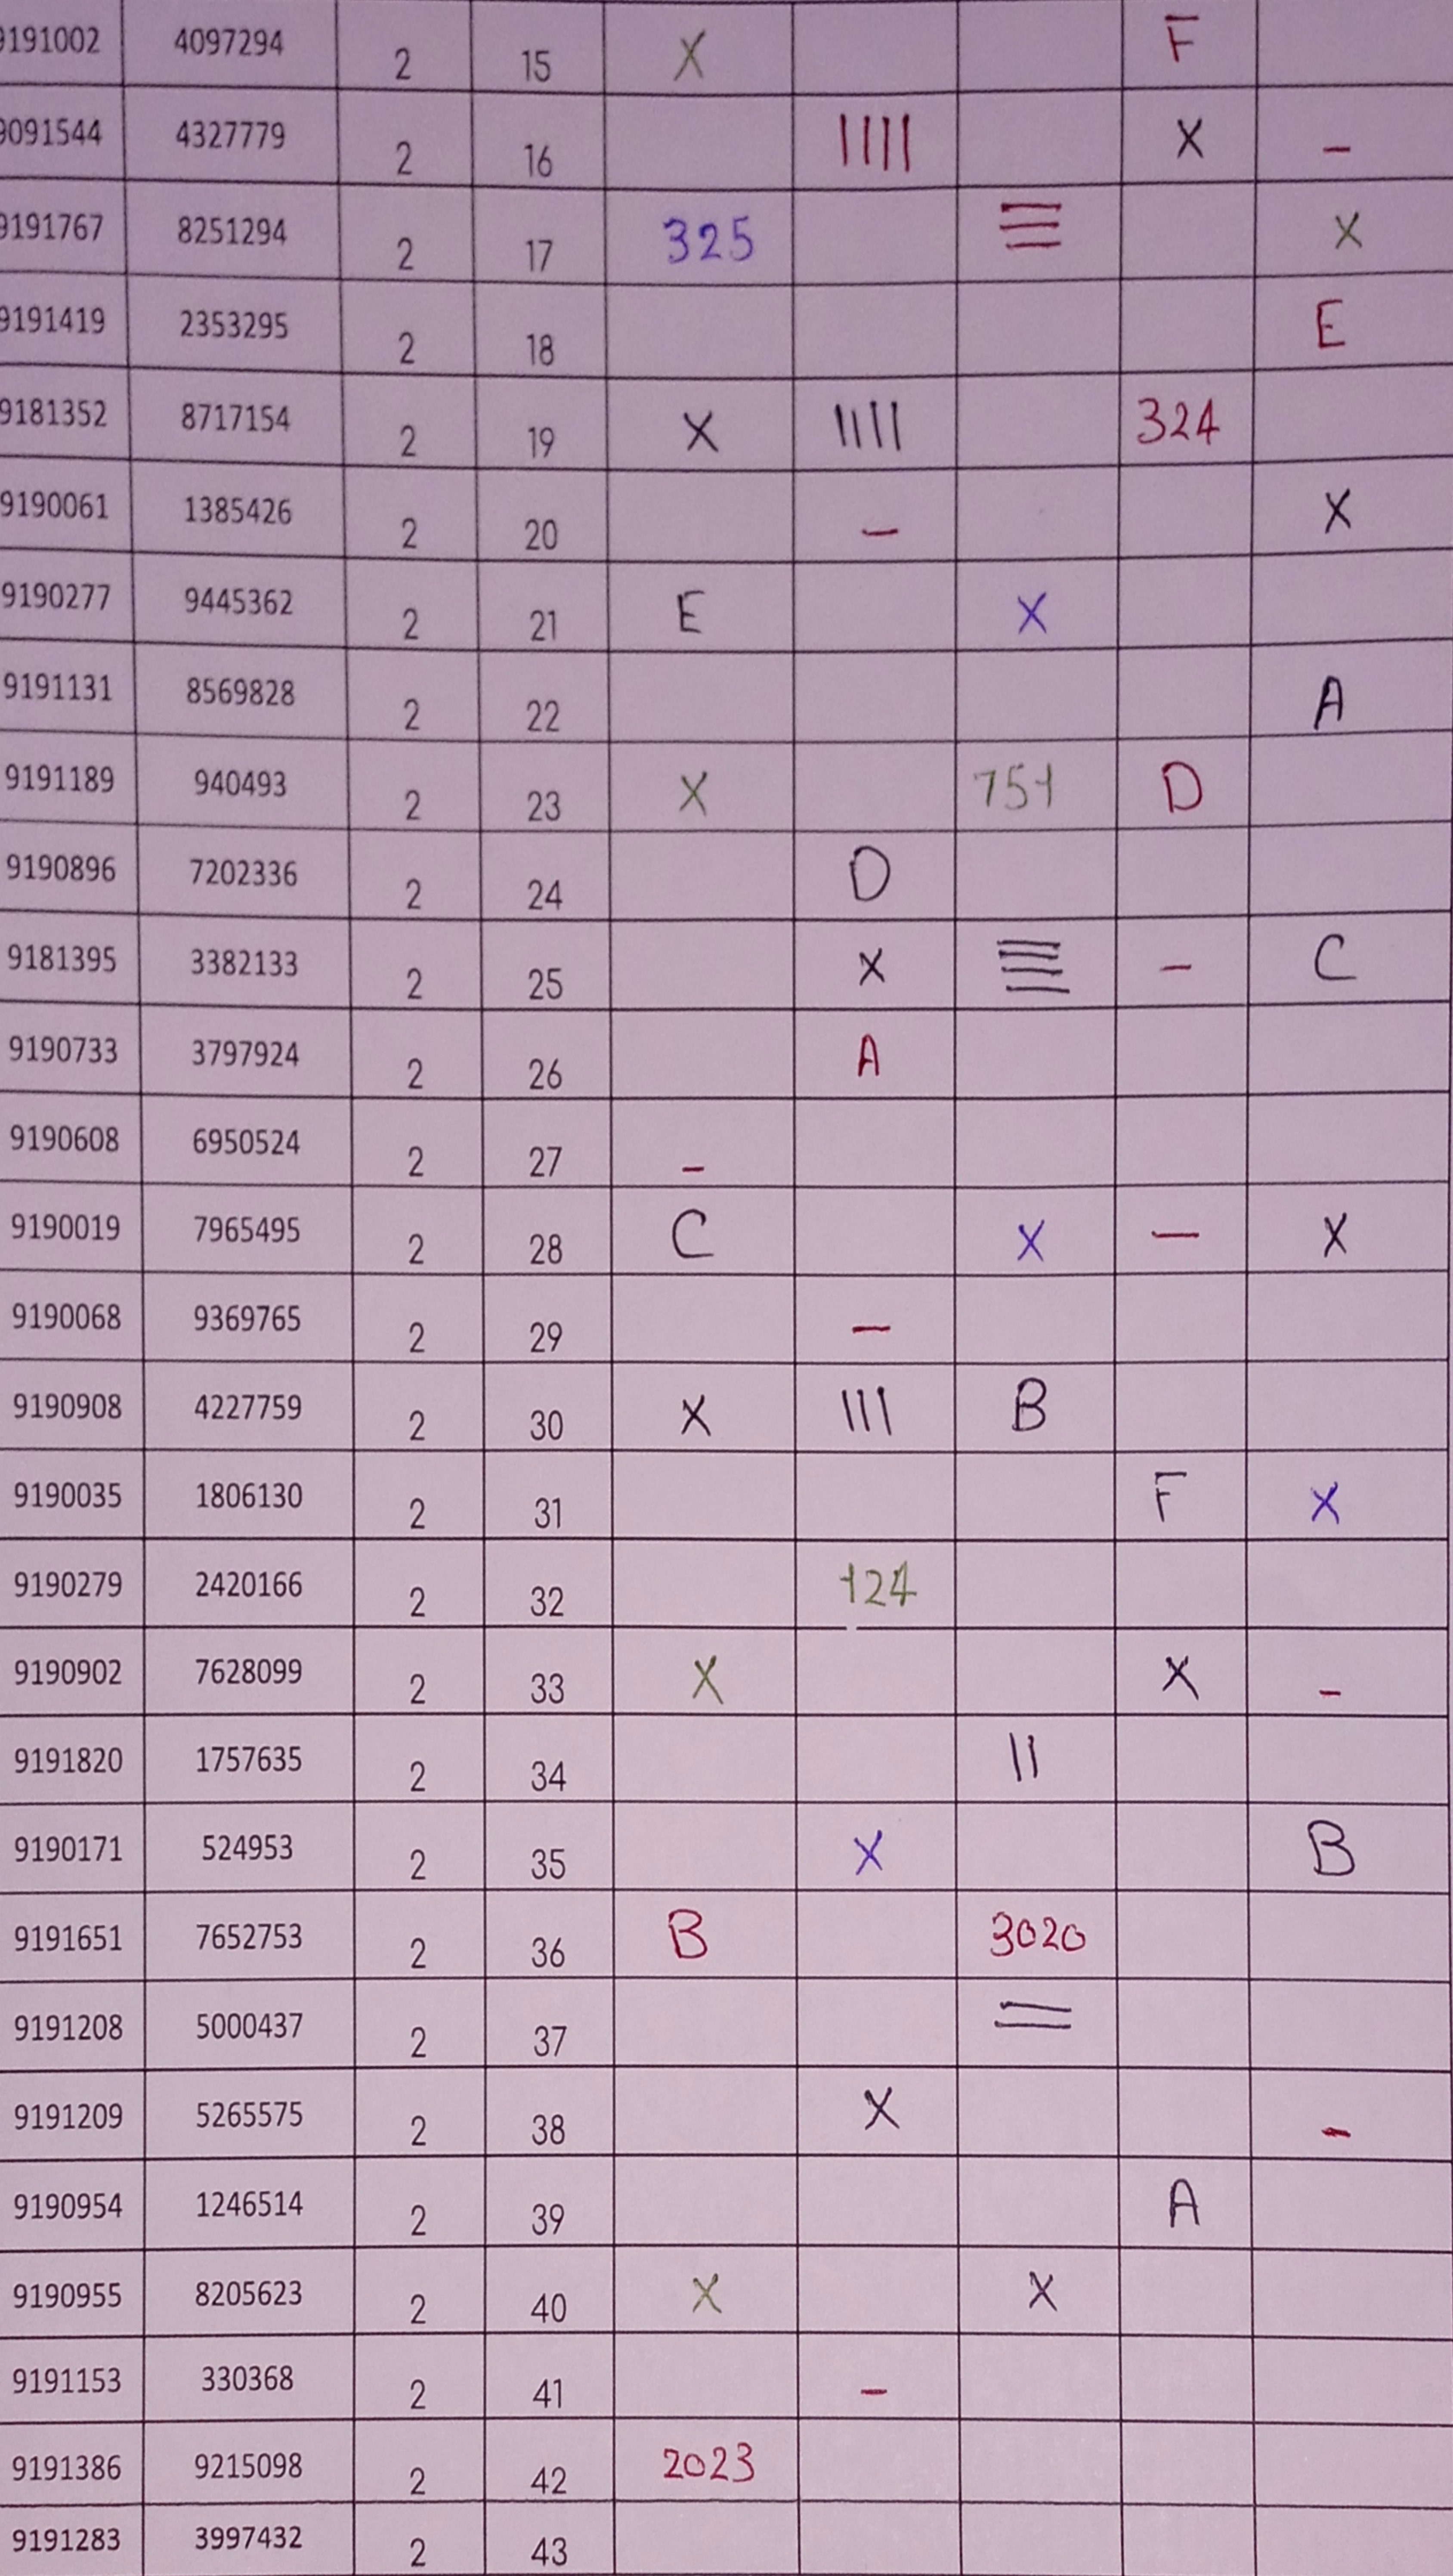 9191002 4097294 2 15 X F
9091544 4327779 2 16 |||| X –
9191767 8251294 2 17 325 ☰ X
9191419 2353295 2 18 E
9181352 8717154 2 19 X |||| 324
9190061 1385426 2 20 – X
9190277 9445362 2 21 E X
9191131 8569828 2 22 A
9191189 940493 2 23 X 751 D
9190896 7202336 2 24 D
9181395 3382133 2 25 X 𝄘 – C
9190733 3797924 2 26 A
9190608 6950524 2 27 –
9190019 7965495 2 28 C X – X
9190068 9369765 2 29 –
9190908 4227759 2 30 X ||| B
9190035 1806130 2 31 F X
9190279 2420166 2 32 124
9190902 7628099 2 33 X X –
9191820 1757635 2 34 ||
9190171 524953 2 35 X B
9191651 7652753 2 36 B 3020
9191208 5000437 2 37 =
9191209 5265575 2 38 X –
9190954 1246514 2 39 A
9190955 8205623 2 40 X X
9191153 330368 2 41 –
9191386 9215098 2 42 2023
9191283 3997432 2 43